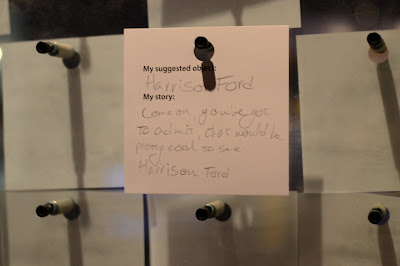 My suggested object:
Harrison Ford
My story:
Come on, you've got
to admit, that would be
pretty cool to see
Harrison Ford